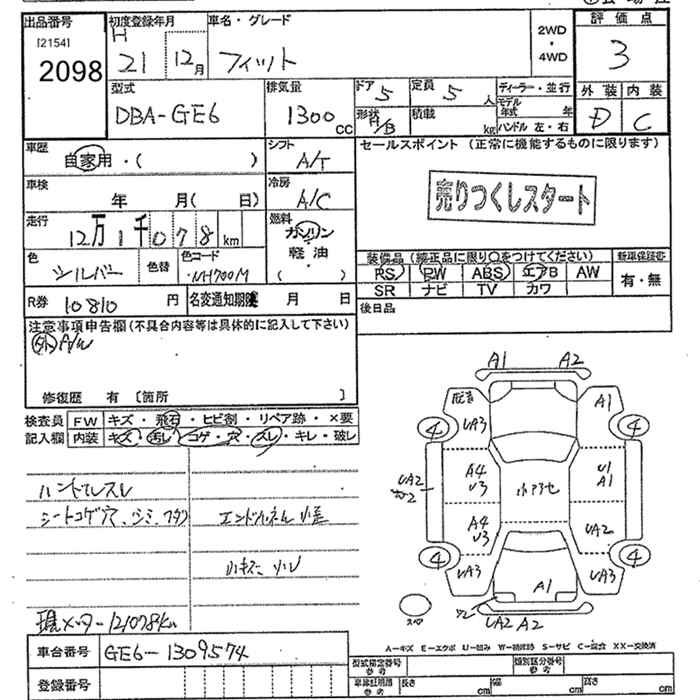 出品番号
[2154]
2098
初度登録年月
H
21 12月
車名・グレード
フィット
2WD
・
4WD
評価点
3
外装 内装
D C
型式
DBA-GE6
排気量
1300cc
ドア 5
形状 H/B
定員 5人
積載 kg
ディーラー・並行
モデル年式 年
ハンドル 左・右
車歴
自家用・( )
シフト
A/T
車検
年 月( 日)
冷房
A/C
走行
12万1千078km
燃料
ガソリン
軽油
( )
色
シルバー
色替
色コード
NH700M
R券 10810 円
名変通知期限 月 日
セールスポイント (正常に機能するものに限ります)
売りつくしスタート
装備品 (純正品に限り○をつけてください)
PS PW ABS エアB AW
SR ナビ TV カワ
新車保証書
有・無
後日品
注意事項申告欄 (不具合内容等は具体的に記入して下さい)
外 A/W
修復歴 有 [箇所 ]
検査員記入欄
FW キズ・飛石・ヒビ割・リペア跡・×要
内装 キズ・汚レ・コゲ・穴・スレ・キレ・破レ
ハンドルスレ
シートコゲ穴、シミ、
小キズ、
現メーター121078km
車台番号 GE6-1309574
登録番号
A1 A2
UA3 A1
4 4
UA2
A4
U3
U1
A1
A4
U3
UA2
4 4
UA3 UA3
A1
UA2 A2
A-キズ E-エクボ U-凹み W-補修跡 S-サビ C-腐食 XX-交換済
型式指定番号
参考
類別区分番号
参考
車検証明書
参考
長さ cm 幅 cm 高さ cm